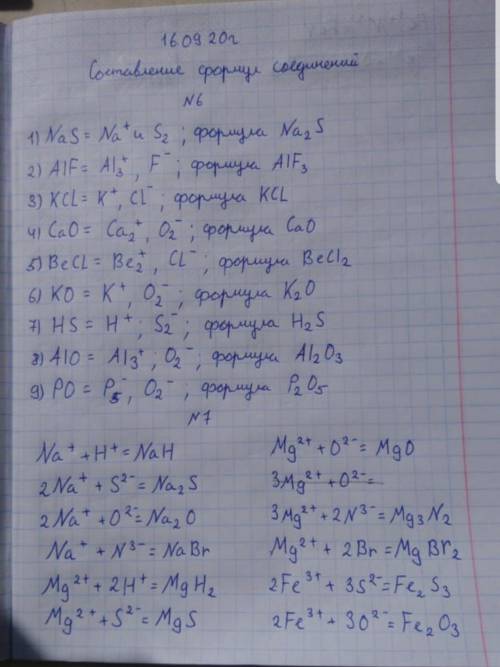 16.09.20г
Составление формул соединений
№6
1) NaS = Na⁺ и S₂ ; формула Na₂S
2) AlF = Al₃⁺, F⁻ ; формула AlF₃
3) KCl = K⁺, Cl⁻ ; формула KCL
4) CaO = Ca₂⁺, O₂⁻ ; формула CaO
5) BeCL = Be₂⁺, CL⁻ ; формула BeCl₂
6) KO = K⁺, O₂⁻ ; формула K₂O
7) HS = H⁺ ; S₂⁻ ; формула H₂S
8) AlO = Al₃⁺, O₂⁻ ; формула Al₂O₃
9) PO = P₅⁻, O₂⁻, формула P₂O₅
№7
Na⁺ + H⁺ = NaH
2Na⁺ + S²⁻ = Na₂S
2Na⁺ + O²⁻ = Na₂O
Na⁺ + N³⁻ = NaBr
Mg²⁺ + 2H⁺ = MgH₂
Mg²⁺ + S²⁻ = MgS
Mg²⁺ + O²⁻ = MgO
3Mg²⁺ + O²⁻ =
3Mg²⁺ + 2N³⁻ = Mg₃N₂
Mg²⁺ + 2Br = MgBr₂
2Fe³⁺ + 3S²⁻ = Fe₂S₃
2Fe³⁺ + 3O²⁻ = Fe₂O₃